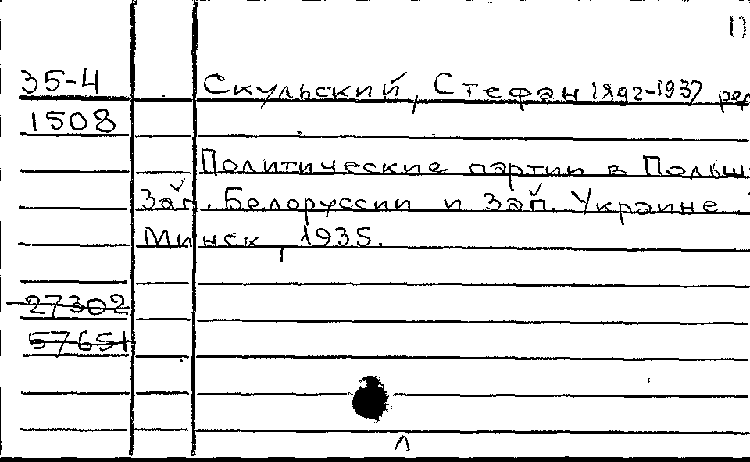 1)
35-4 Скульский, Стефан 1892-1937 ред
1508
Политические партии в Польш
Зап. Белоруссии и Зап. Украине
Минск, 1935.
27302
57651